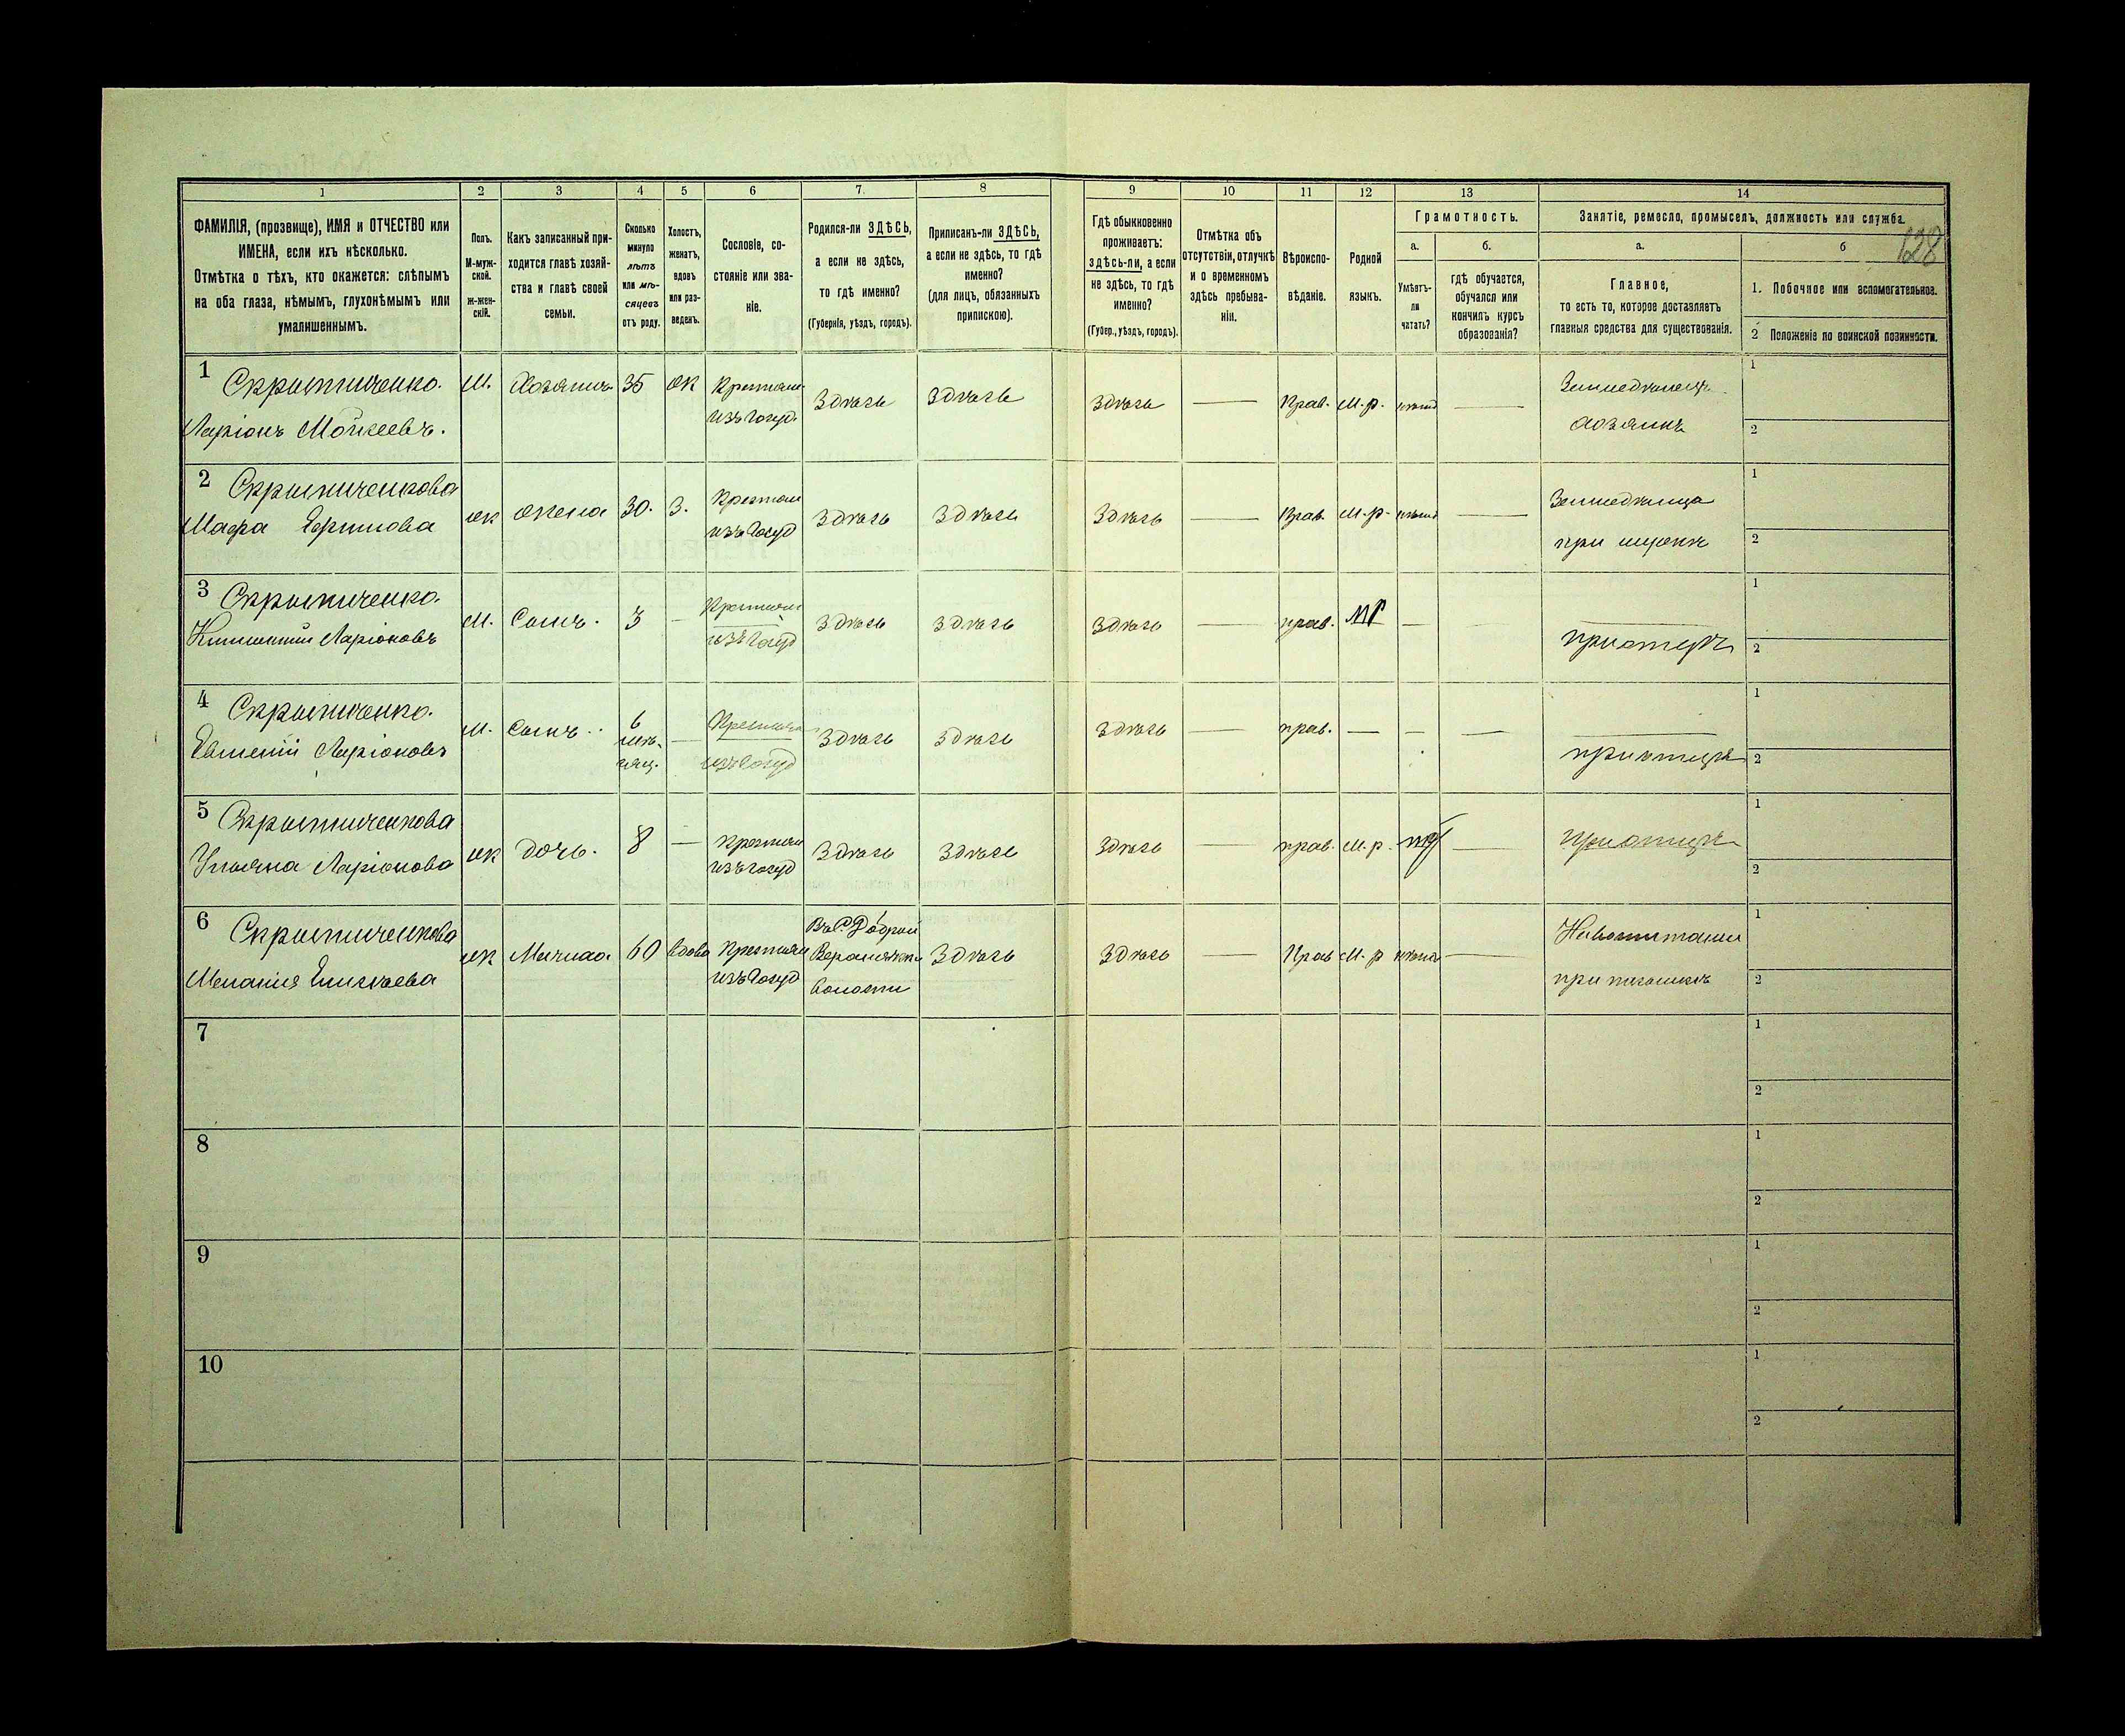 1 2 3 4 5 6 7 8 9 10 11 12 13 14
ФАМИЛІЯ, (прозвище), ИМЯ и ОТЧЕСТВО или
ИМЕНА, если ихъ нѣсколько.
Отмѣтка о тѣхъ, кто окажется: слѣпымъ
на оба глаза, нѣмымъ, глухонѣмымъ или
умалишеннымъ.
Полъ.
М-муж-
ской.
Ж-жен-
скій.
Какъ записанный при-
ходится главѣ хозяй-
ства и главѣ своей
семьи.
Сколько
минуло
лѣтъ
или мѣ-
сяцевъ
отъ роду.
Холостъ,
женатъ,
вдовъ
или раз-
веденъ.
Сословіе, со-
стояніе или зва-
ніе.
Родился-ли ЗДѢСЬ,
а если не здѣсь,
то гдѣ именно?
(Губернія, уѣздъ, городъ).
Приписанъ-ли ЗДѢСЬ,
а если не здѣсь, то гдѣ
именно?
(для лицъ, обязанныхъ
припискою).
Гдѣ обыкновенно
проживаетъ:
здѣсь-ли, а если
не здѣсь, то гдѣ
именно?
(Губер., уѣздъ, городъ).
Отмѣтка объ
отсутствіи, отлучкѣ
и о временномъ
здѣсь пребыва-
ніи.
Вѣроиспо-
вѣданіе.
Родной
языкъ.
Грамотность.
а.
Умѣетъ-
ли
читать?
б.
гдѣ обучается,
обучался или
кончилъ курсъ
образованія?
Занятіе, ремесло, промыселъ, должность или служба.
а.
Главное,
то есть то, которое доставляетъ
главныя средства для существованія.
б
128
1. Побочное или вспомогательное.
2 Положеніе по воинской повинности.
1 Скрыпниченко.
Ларіонъ Мойсеевъ.
М. Хозяинъ 35 ж
Крестьян
изъ госуд.
Здѣсь Здѣсь Здѣсь — Прав. М.р. —
Земледѣлецъ
хозяинъ
1
2
2 Скрыпниченкова
Ефимова
ж жена 30. З.
Крестьян
изъ госуд
Здѣсь Здѣсь Здѣсь — Прав. М.р. —
Земледѣлица
при мужѣ
1
2
3 Скрыпниченко.
Ларіоновъ
М. Сынъ. 3 —
Крестьян
изъ госуд
Здѣсь Здѣсь Здѣсь — прав. МР — —
при отцѣ
1
2
4 Скрыпниченко.
Евгеній Ларіоновъ
М. Сынъ. 6
мѣ-
сяц. —
Крестьян
изъ госуд
Здѣсь Здѣсь Здѣсь — прав. — — —
при отцѣ
1
2
5 Скрыпниченкова
Ульяна Ларіонова
ж дочь. 8 —
Крестьян
изъ госуд
Здѣсь Здѣсь Здѣсь — прав. М.р. —
при отцѣ
1
2
6 Скрыпниченкова
Меланія Елисѣева
ж Мачиха 60 вдова
Крестьян
изъ госуд
волости
Здѣсь Здѣсь — Прав М.р —
при
1
2
7
1
2
8
1
2
9
1
2
10
1
2